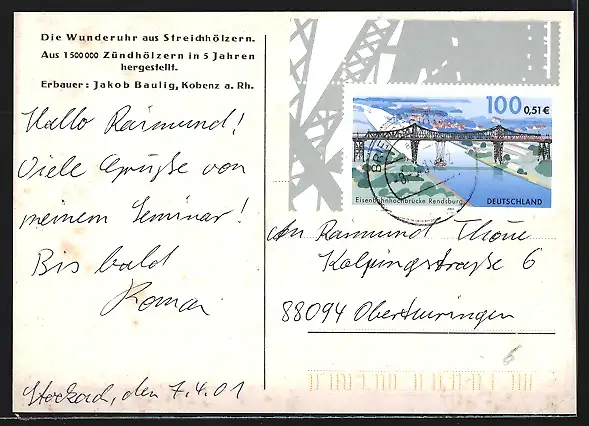 Die Wunderuhr aus Streichhölzern.
Aus 1500000 Zündhölzern in 5 Jahren
hergestellt.
Erbauer: Jakob Baulig, Kobenz a. Rh.
Hallo Raimund!
Viele Grüße von
meinem Seminar!
Bis bald
Roman
Stockach, den 7.4.01
100 0,51€
Eisenbahnhochbrücke Rendsburg
DEUTSCHLAND
An Raimund Thöne
Kolpingstraße 6
88094 Oberteuringen
6